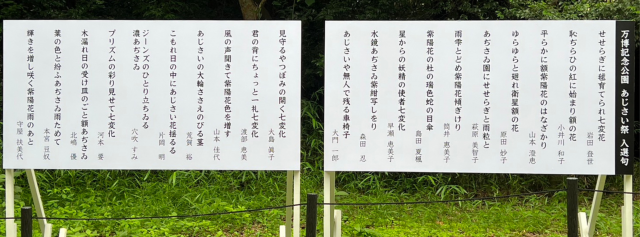 万博記念公園 あじさい祭 入選句
せせらぎに毬育てられ七変花 岩田 登世
恥ぢらひの紅に始まり額の花 小井川 和子
平らかに額紫陽花のはなざかり 山本 澄恵
ゆらゆらと廻れ衛星額の花 岩田 紗子
あぢさゐ園にせせらぎと雨粒と 萩原 美智子
雨雫とどめ紫陽花傾ぎけり 筒井 恵美子
紫陽花の杜の瑠色蛇の目傘 島田 夏楓
星からの妖精の使者七変化 早瀬 恵美子
水鏡あぢさゐ紫紺写しをり 森田 忍
あじさいや無人で残る車椅子 大門 一郎
見守るやつぼみの開く七変化 大島 眞子
君の背にちょっと一礼七変化 渡部 恵美
風の声聞きて紫陽花色を増す 山本 佳代
あじさいの大輪ささえのびる茎 芝賀 裕
こもれ日の中にあじさい花揺るる 片岡 明
ジーンズのひとり立ちゐる濃あぢさゐ 穴吹 すみ
プリズムの彩り見せて七変化 河本 要
木漏れ日の受け皿のごと額あぢさゐ 北嶋 優
葉の色と紛ふあぢさゐ雨ためて 本宮 豆奴
輝きを増し咲く紫陽花雨のあと 守屋 扶美代